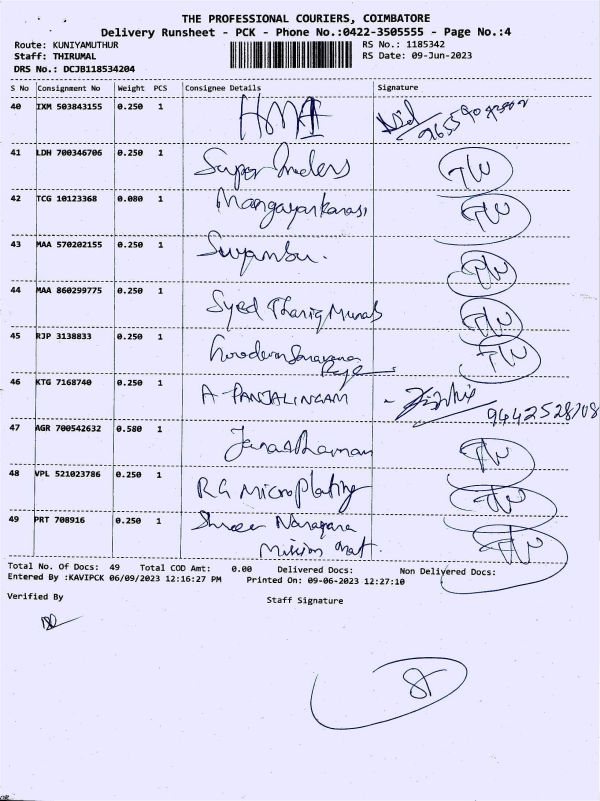 THE PROFESSIONAL COURIERS, COIMBATORE
Delivery Runsheet - PCK - Phone No.:0422-3505555 - Page No.:4
Route: KUNIYAMUTHUR RS No.: 1185342
Staff: THIRUMAL RS Date: 09-Jun-2023
DRS No.: DCJB118534204
S No Consignment No Weight PCS Consignee Details Signature
40 IXM 503843155 0.250 1
41 LDH 700346706 0.250 1 Super
42 TCG 10123368 0.080 1 Mangayarkarasi
43 MAA 570202155 0.250 1 Suyambu.
44 MAA 860299775 0.250 1 Syed Thariq
45 RJP 3138833 0.250 1
46 KTG 7168740 0.250 1 A-PANJALINGAM 9442528708
47 AGR 700542632 0.580 1
48 VPL 521023786 0.250 1 RG Micro Plating
49 PRT 708916 0.250 1 Shree Narayana
Mission
Total No. Of Docs: 49 Total COD Amt: 0.00 Delivered Docs: Non Delivered Docs:
Entered By :KAVIPCK 06/09/2023 12:16:27 PM Printed On: 09-06-2023 12:27:10
Verified By Staff Signature